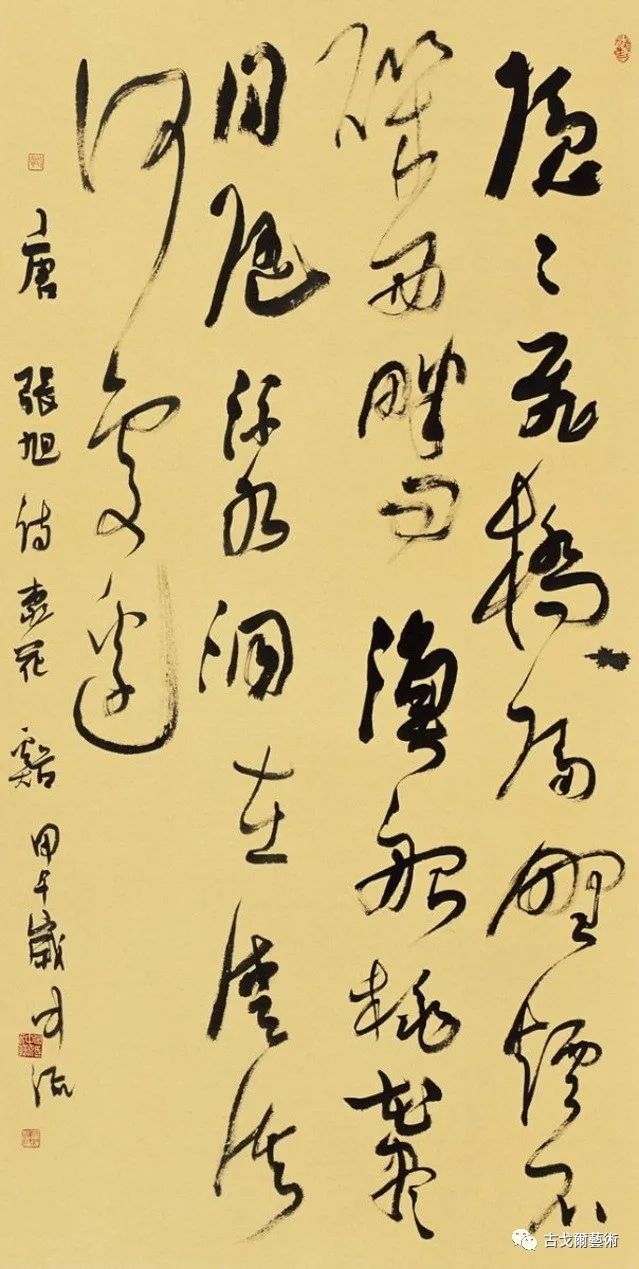 隱〻飛橋隔野煙石
磯西畔問漁船桃花盡
日隨流水洞在清溪
何處邊
唐 張旭 詩 桃花谿 甲午歲
古戈爾藝術